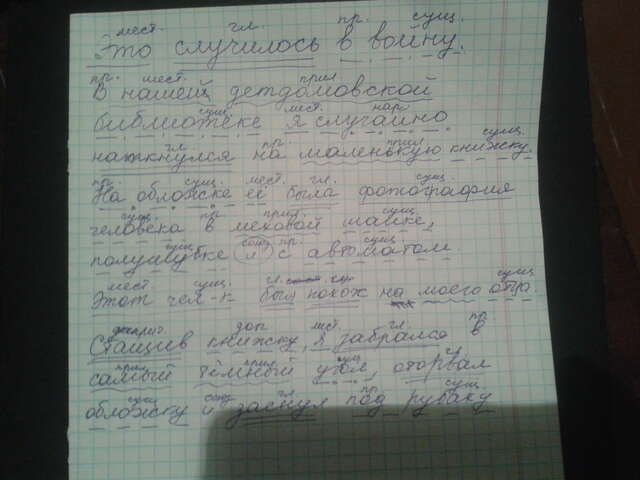 мест. гл. пр. сущ.
Это случилось в войну.
пр. мест. прил.
В нашей детдомовской
сущ. мест. нар.
библиотеке я случайно
гл. пр. прил. сущ.
наткнулся на маленькую книжку.
пр. сущ. мест. гл. сущ.
На обложке её была фотография
сущ. пр. прил. сущ.
человека в меховой шапке,
сущ. союз пр. сущ.
полушубке и с автоматом.
мест. сущ. гл. сущ.
Этот чел-к был похож на моего отца.
дееприч. доп. мест. гл. пр.
Стащив книжку, я забрался в
прил. прил. сущ. гл.
самый тёмный угол, оторвал
сущ. союз гл. пр. сущ.
обложку и засунул под рубаху